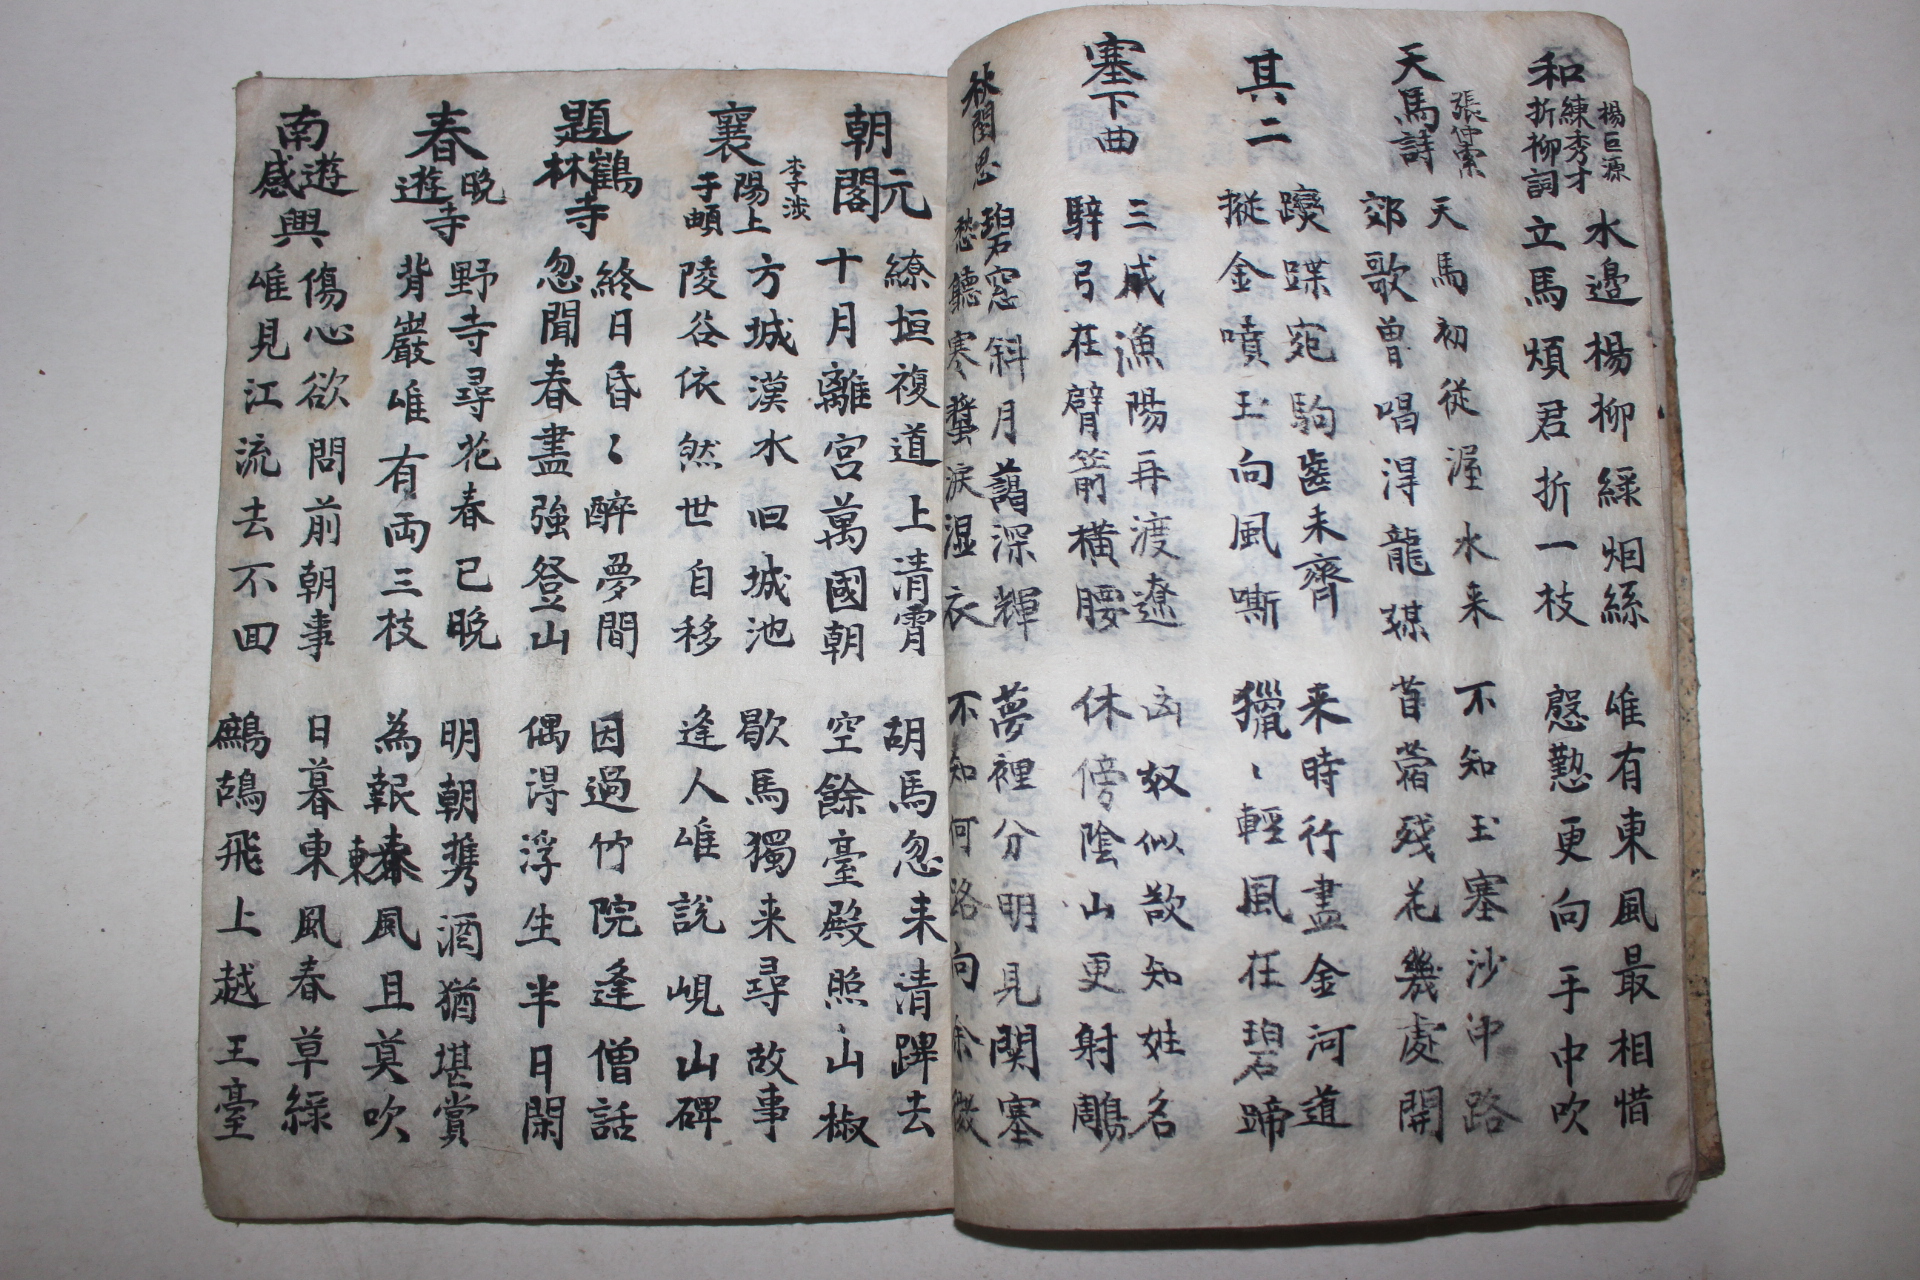 和練秀才折柳詞 楊巨源
水邊楊柳綠烟絲 唯有東風最相惜
立馬煩君折一枝 慇懃更向手中吹
天馬詩 張仲素
天馬初從渥水来 不知玉塞沙中路
郊歌曽唱淂龍媒 苜蓿残花幾處開
其二
躞蹀宛駒齒未齊 来時行盡金河道
摐金噴玉向風嘶 獵〻輕風在碧蹄
塞下曲
三戍漁陽再渡遼 匈奴似欲知姓名
騂弓在臂箭橫腰 休傍陰山更射鵰
秋閨思
碧窓斜月藹深輝 夢裡分明見関塞
愁聽寒螀淚湿衣 不知何路向金微
朝元閣
繚垣複道上清霄 胡馬忽来清蹕去
十月離宮萬國朝 空餘臺殿照山椒
襄陽上于頔 李涉
方城漢水旧城池 歇馬獨来尋故事
陵谷依然世自移 逢人唯說峴山碑
題鶴林寺
終日昏〻醉夢間 因過竹院逢僧話
忽聞春盡強登山 偶淂浮生半日閑
春晚遊寺
野寺尋花春已晚 明朝携酒猶堪賞
背巖唯有両三枝 為報春東風且莫吹
南遊感興
傷心欲問前朝事 日暮東風春草綠
唯見江流去不回 鷓鴣飛上越王臺